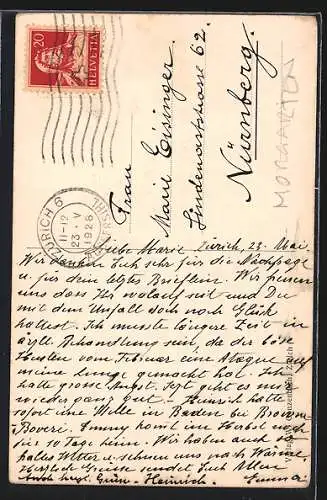 20
HELVETIA
ZÜRICH 6
11-12
23·V
1928
Frau
Marie Eisinger.
Lindenaststrasse 62.
Nürnberg.
MORGARTEN
Liebe Marie Zürich, 23. Mai.
Wir danken Dir sehr für die Nachfrage
u. für dein letztes Brieflein. Wir freuen
uns dass Ihr wolauf seit und Du
mit dem Unfall doch noch Glück
hattest. Ich musste längere Zeit in
ärztl. Behandlung sein, da der böse
Husten vom Februar eine Ataque auf
meine Lunge gemacht hat. Ich
hatte grosse Angst. Jezt geht es mir
wieder ganz gut – Heinrich hatte
sofort eine Stelle in Baden bei Brown
Boveri. Emmy komt im Herbst noch
für 10 Tage heim. Wir haben auch so
kaltes Wetter u. sehnen uns nach Wärme.
Herzliche Grüsse sendet Euch Allen
Auch hrzl. Grüsse Heinrich. Emma